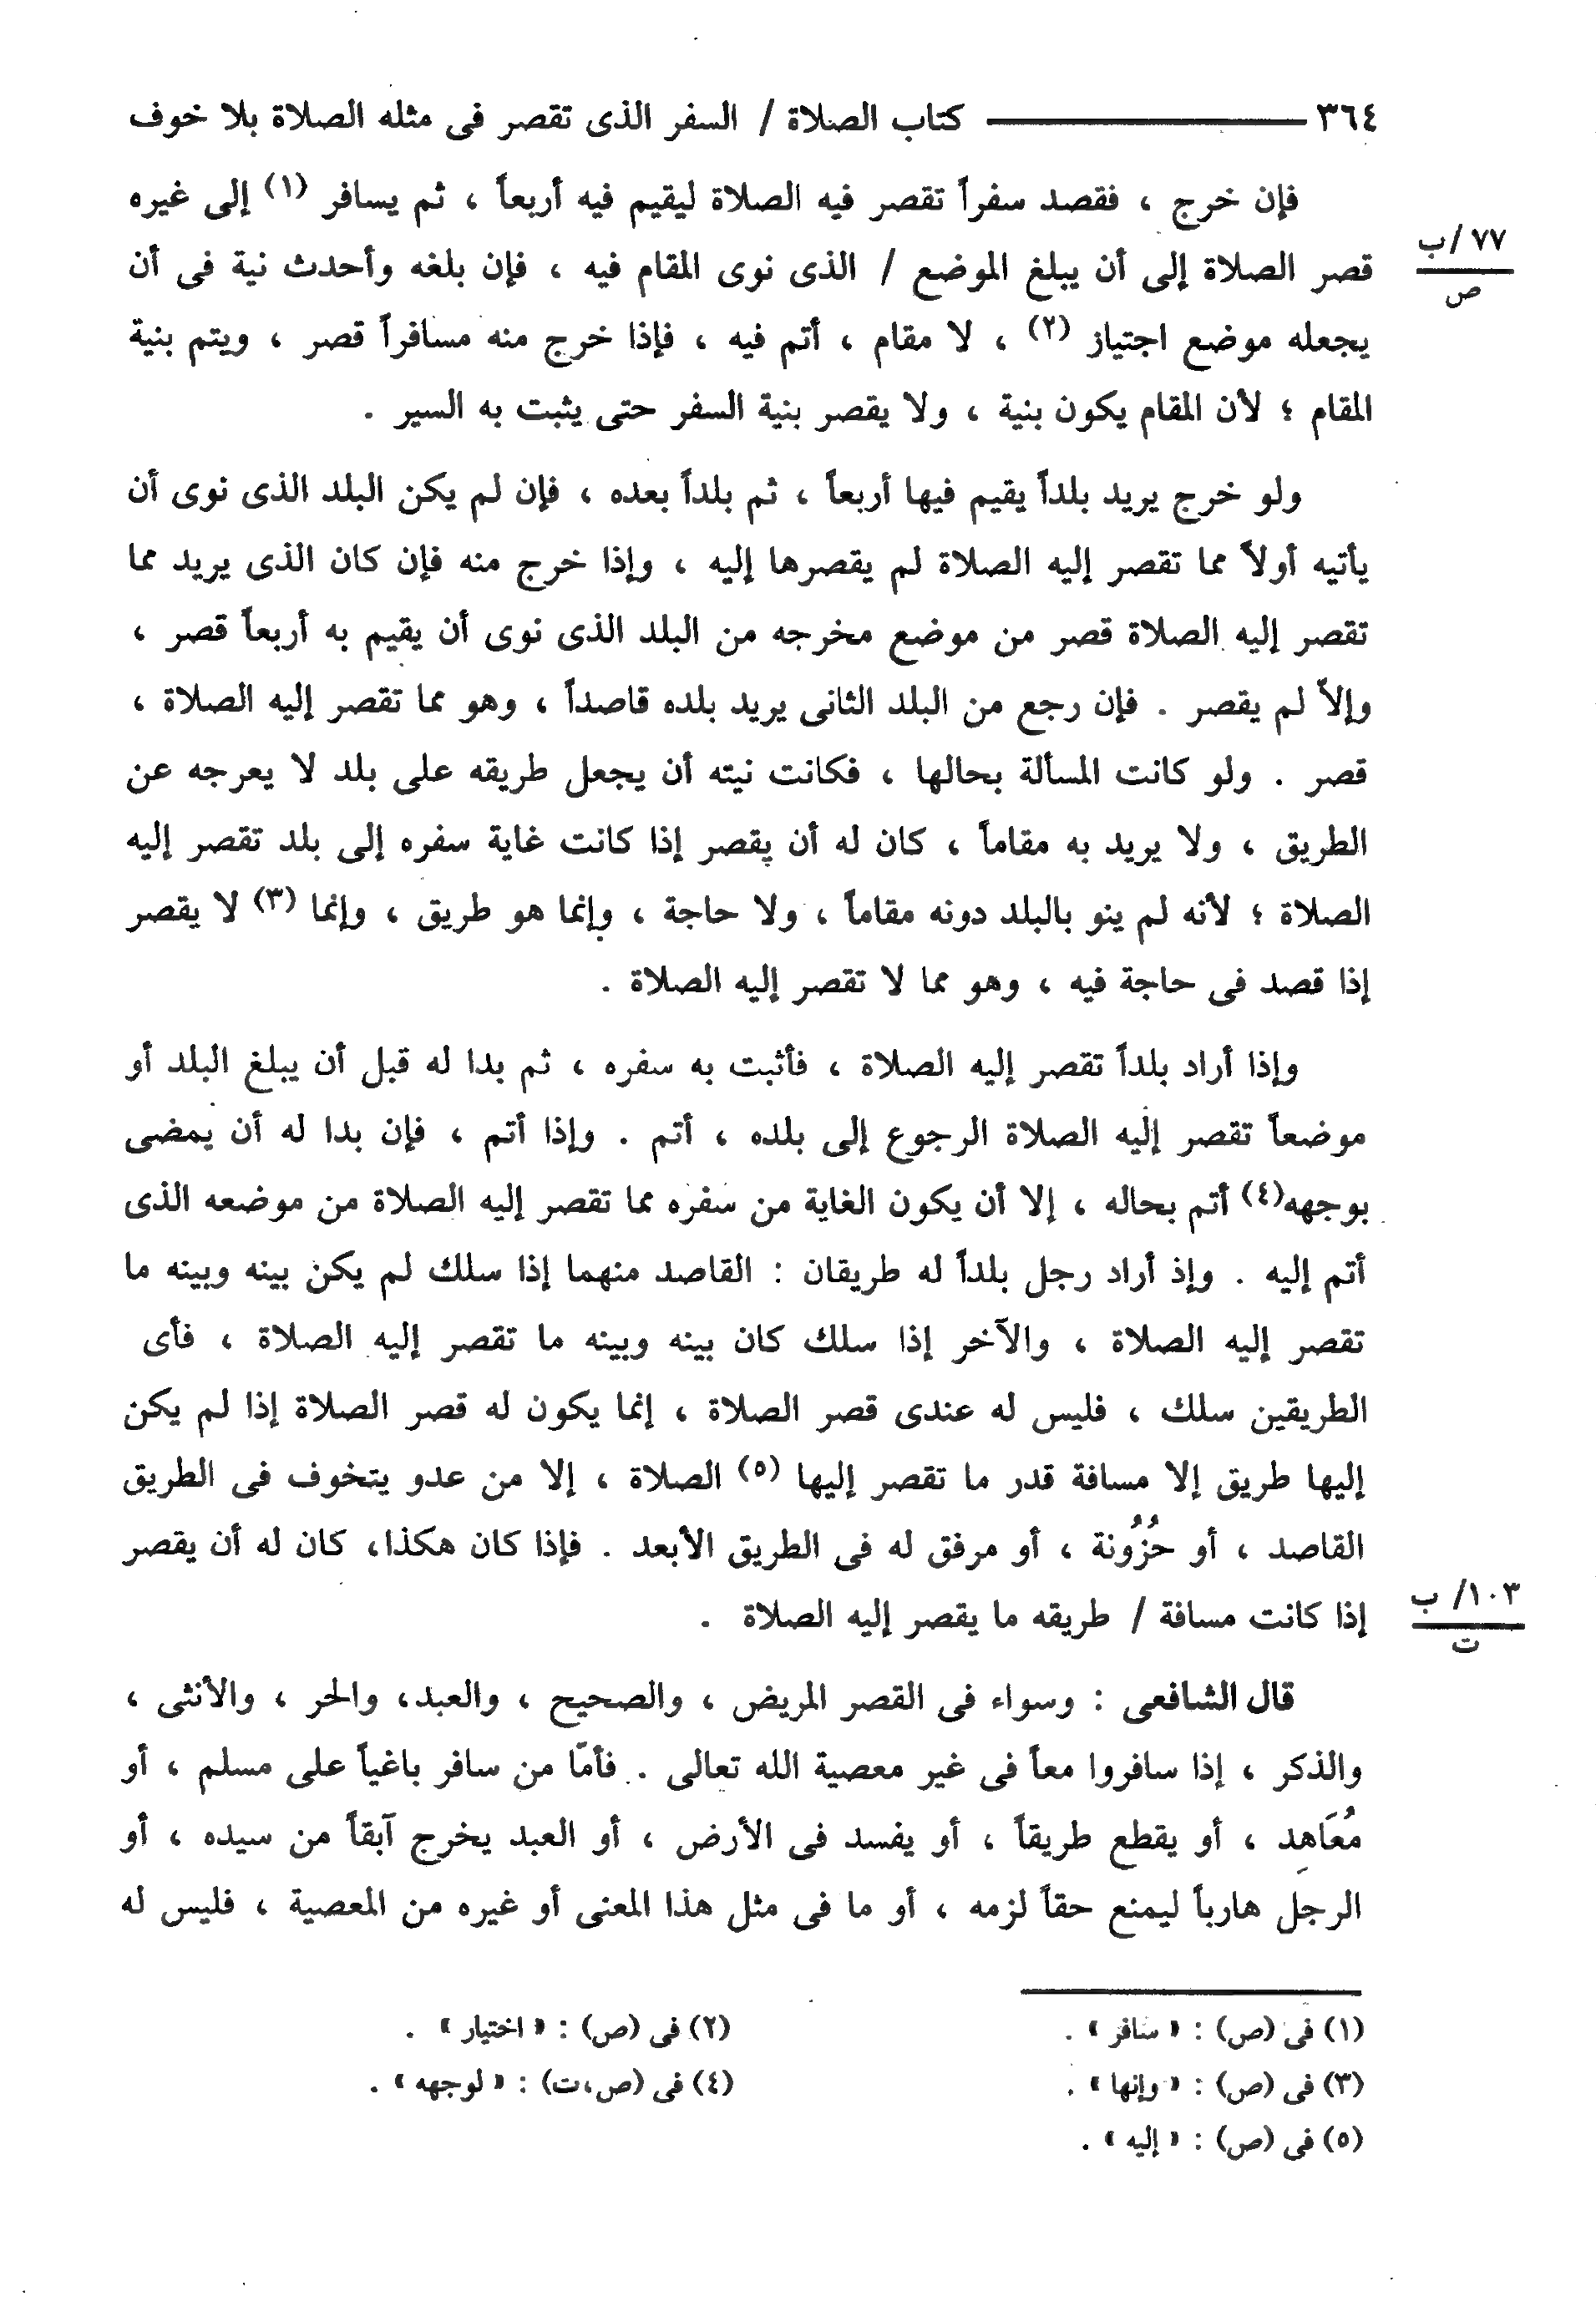 ٣٦٤ كتاب الصلاة / السفر الذى تقصر فى مثله الصلاة بلا خوف
فإن خرج ، فقصد سفراً تقصر فيه الصلاة ليقيم فيه أربعاً ، ثم يسافر (١) إلى غيره
قصر الصلاة إلى أن يبلغ الموضع / الذى نوى المقام فيه ، فإن بلغه وأحدث نية فى أن
٧٧ /ب
ص
يجعله موضع اجتياز (٢) ، لا مقام ، أتم فيه ، فإذا خرج منه مسافراً قصر ، ويتم بنية
المقام ؛ لأن المقام يكون بنية ، ولا يقصر بنية السفر حتى يثبت به السير .
ولو خرج يريد بلداً يقيم فيها أربعاً ، ثم بلداً بعده ، فإن لم يكن البلد الذى نوى أن
يأتيه أولاً مما تقصر إليه الصلاة لم يقصرها إليه ، وإذا خرج منه فإن كان الذى يريد مما
تقصر إليه الصلاة قصر من موضع مخرجه من البلد الذى نوى أن يقيم به أربعاً قصر ،
وإلاّ لم يقصر . فإن رجع من البلد الثانى يريد بلده قاصداً ، وهو مما تقصر إليه الصلاة ،
قصر . ولو كانت المسألة بحالها ، فكانت نيته أن يجعل طريقه على بلد لا يعرجه عن
الطريق ، ولا يريد به مقاماً ، كان له أن يقصر إذا كانت غاية سفره إلى بلد تقصر إليه
الصلاة ؛ لأنه لم ينو بالبلد دونه مقاماً ، ولا حاجة ، وإنما هو طريق ، وإنما (٣) لا يقصر
إذا قصد فى حاجة فيه ، وهو مما لا تقصر إليه الصلاة .
وإذا أراد بلداً تقصر إليه الصلاة ، فأثبت به سفره ، ثم بدا له قبل أن يبلغ البلد أو
موضعاً تقصر إليه الصلاة الرجوع إلى بلده ، أتم . وإذا أتم ، فإن بدا له أن يمضى
بوجهه(٤) أتم بحاله ، إلا أن يكون الغاية من سفره مما تقصر إليه الصلاة من موضعه الذى
أتم إليه . وإذ أراد رجل بلداً له طريقان : القاصد منهما إذا سلك لم يكن بينه وبينه ما
تقصر إليه الصلاة ، والآخر إذا سلك كان بينه وبينه ما تقصر إليه الصلاة ، فأى
الطريقين سلك ، فليس له عندى قصر الصلاة ، إنما يكون له قصر الصلاة إذا لم يكن
إليها طريق إلا مسافة قدر ما تقصر إليها (٥) الصلاة ، إلا من عدو يتخوف فى الطريق
القاصد ، أو حُزُونة ، أو مرفق له فى الطريق الأبعد . فإذا كان هكذا، كان له أن يقصر
إذا كانت مسافة / طريقه ما يقصر إليه الصلاة .
١٠٣/ ب
ت
قال الشافعى : وسواء فى القصر المريض ، والصحيح ، والعبد، والحر ، والأنثى ،
والذكر ، إذا سافروا معاً فى غير معصية الله تعالى . فأمّا من سافر باغياً على مسلم ، أو
مُعَاهِد ، أو يقطع طريقاً ، أو يفسد فى الأرض ، أو العبد يخرج آبقاً من سيده ، أو
الرجل هارباً ليمنع حقاً لزمه ، أو ما فى مثل هذا المعنى أو غيره من المعصية ، فليس له
(١) فى (ص) : « سافر » . (٢) فى (ص) : « اختيار » .
(٣) فى (ص) : « وإنها » . (٤) فى (ص،ت) : « لوجهه » .
(٥) فى (ص) : « إليه » .